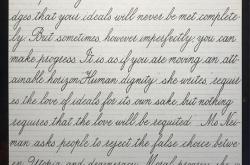 dges that your ideals will never be met complete-
ly. But sometimes, however imperfectly, you can
make progress. It is as if you are moving an att-
ainable horizon. Human dignity, she writes, requir-
es the love of ideals for its own sake, but nothing
requires that the love will be requited. Ms. Nei-
man asks people to reject the false choice betwe-
en Utopia and degeneracy. Moral progress, she